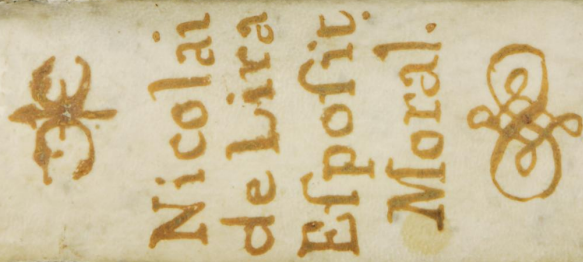 Nicolai
de Lira
Eſpoſit.
Moral.